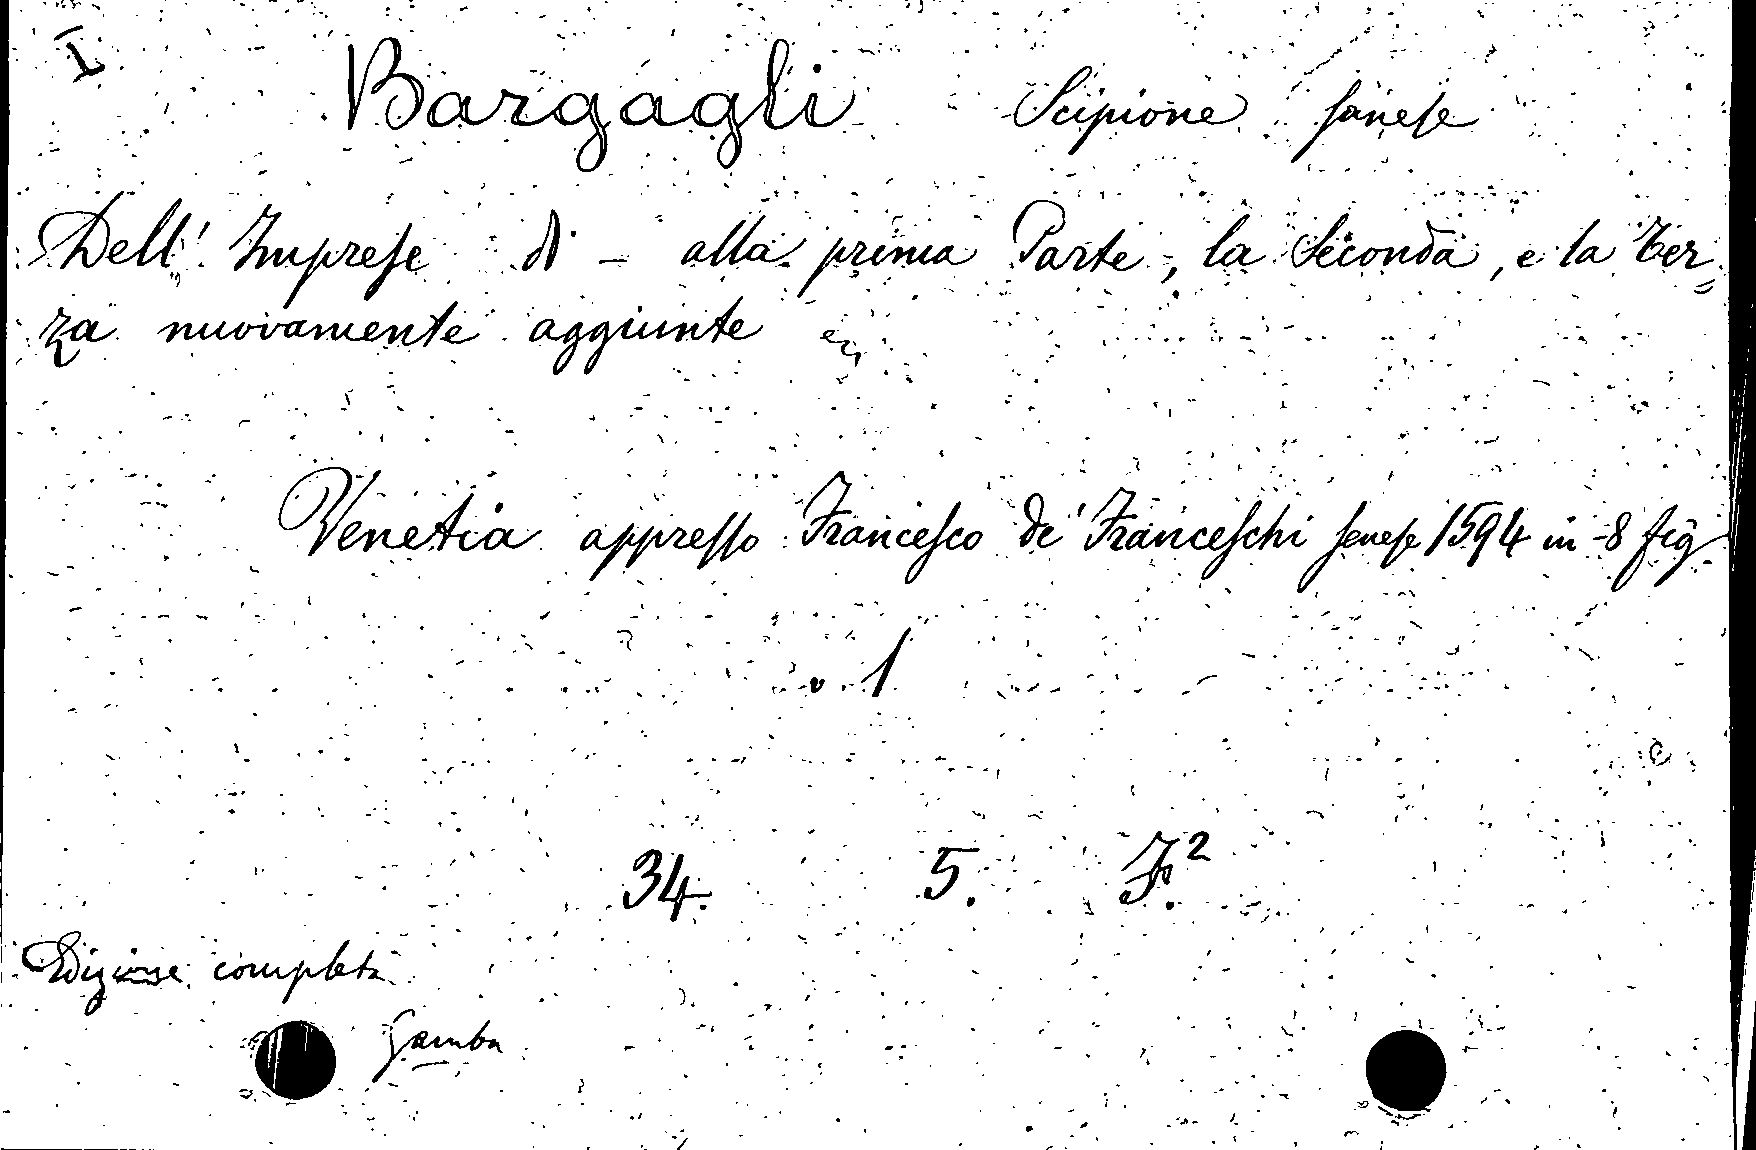 I
Bargagli Scipione sanese
Dell' Imprese di - alla prima Parte, la Seconda, e la Ter=
za nuovamente aggiunte
Venetia appresso Francesco de' Franceschi senese 1594 in-8 fig.
v. 1
34. 5. F.²
Edizione completa
Gamba